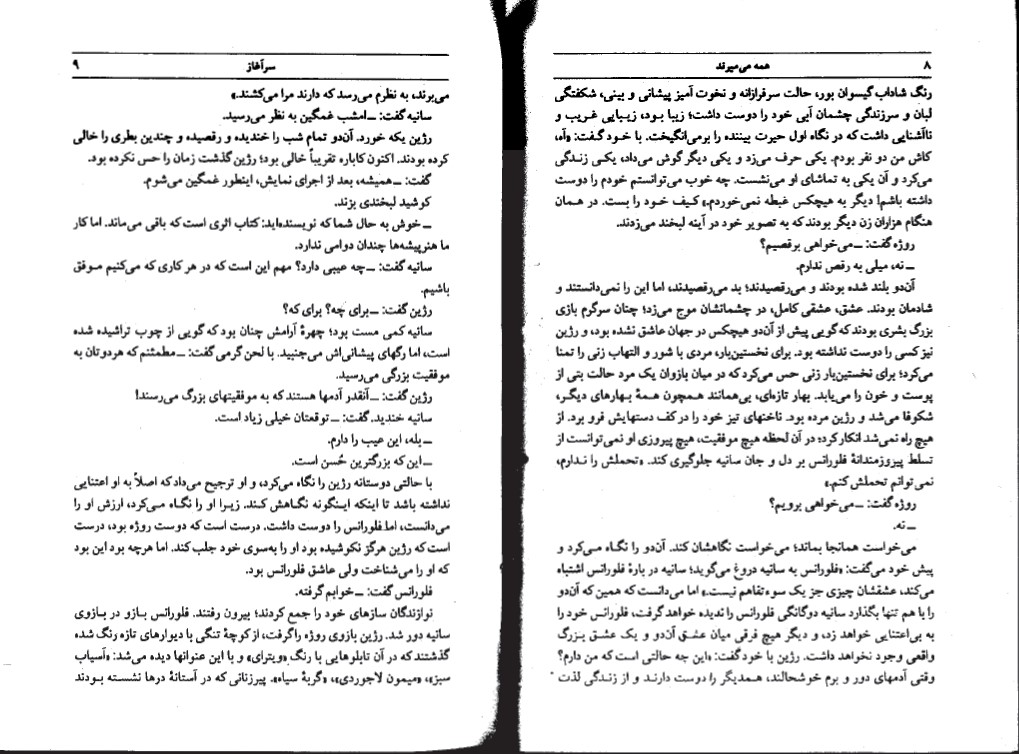 ۸
همه می‌میرند
رنگ شاداب گیسوان بور، حالت سرفرازانه و نخوت آمیز پیشانی و بینی، شکفتگی
لبان و سرزندگی چشمان آبی خود را دوست داشت؛ زیبا بود، زیبایی غریب و
ناآشنایی داشت که در نگاه اول حیرت بیننده را برمی‌انگیخت. با خود گفت: «آه،
کاش من دو نفر بودم. یکی حرف می‌زد و یکی دیگر گوش می‌داد، یکی زندگی
می‌کرد و آن یکی به تماشای او می‌نشست. چه خوب می‌توانستم خودم را دوست
داشته باشم! دیگر به هیچکس غبطه نمی‌خوردم.» کیف خود را بست. در همان
هنگام هزاران زن دیگر بودند که به تصویر خود در آینه لبخند می‌زدند.
روژه گفت: ــ می‌خواهی برقصیم؟
ــ نه، میلی به رقص ندارم.
آن‌دو بلند شده بودند و می‌رقصیدند؛ بد می‌رقصیدند، اما این را نمی‌دانستند و
شادمان بودند. عشق، عشقی کامل، در چشمانشان موج می‌زد؛ چنان سرگرم بازی
بزرگ بشری بودند که گویی پیش از آن‌دو هیچکس در جهان عاشق نشده بود، و رژین
نیز کسی را دوست نداشته بود. برای نخستین‌بار، مردی با شور و التهاب زنی را تمنا
می‌کرد؛ برای نخستین‌بار زنی حس می‌کرد که در میان بازوان یک مرد حالت بتی از
پوست و خون را می‌یابد. بهار تازه‌ای، بی‌همانند همچون همهٔ بهارهای دیگر،
شکوفا می‌شد و رژین مرده بود. ناخنهای تیز خود را در کف دستهایش فرو برد. از
هیچ راه نمی‌شد انکار کرد؛ در آن لحظه هیچ موفقیت، هیچ پیروزی او نمی‌توانست از
تسلط پیروزمندانهٔ فلورانس بر دل و جان سانیه جلوگیری کند. «تحملش را ندارم،
نمی‌توانم تحملش کنم.»
روژه گفت: ــ می‌خواهی برویم؟
ــ نه.
می‌خواست همانجا بماند؛ می‌خواست نگاهشان کند. آن‌دو را نگاه می‌کرد و
پیش خود می‌گفت: «فلورانس به سانیه دروغ می‌گوید؛ سانیه در بارهٔ فلورانس اشتباه
می‌کند، عشقشان چیزی جز یک سوءتفاهم نیست.» اما می‌دانست که همین که آن‌دو
را با هم تنها بگذارد سانیه دوگانگی فلورانس را ندیده خواهد گرفت، فلورانس خود را
به بی‌اعتنایی خواهد زد، و دیگر هیچ فرقی میان عشق آن‌دو و یک عشق بزرگ
واقعی وجود نخواهد داشت. رژین با خود گفت: «این چه حالتی است که من دارم؟
وقتی آدمهای دور و برم خوشحالند، همدیگر را دوست دارند و از زندگی لذت
سرآغاز
۹
می‌برند، به نظرم می‌رسد که دارند مرا می‌کشند.»
سانیه گفت: ــ امشب غمگین به نظر می‌رسید.
رژین یکه خورد. آن‌دو تمام شب را خندیده و رقصیده و چندین بطری را خالی
کرده بودند. اکنون کاباره تقریباً خالی بود؛ رژین گذشت زمان را حس نکرده بود.
گفت: ــ همیشه، بعد از اجرای نمایش، اینطور غمگین می‌شوم.
کوشید لبخندی بزند.
ــ خوش به حال شما که نویسنده‌اید: کتاب اثری است که باقی می‌ماند. اما کار
ما هنرپیشه‌ها چندان دوامی ندارد.
سانیه گفت: ــ چه عیبی دارد؟ مهم این است که در هر کاری که می‌کنیم موفق
باشیم.
رژین گفت: ــ برای چه؟ برای که؟
سانیه کمی مست بود؛ چهرهٔ آرامش چنان بود که گویی از چوب تراشیده شده
است، اما رگهای پیشانی‌اش می‌جنبید. با لحن گرمی گفت: ــ مطمئنم که هردوتان به
موفقیت بزرگی می‌رسید.
رژین گفت: ــ آنقدر آدمها هستند که به موفقیتهای بزرگ می‌رسند!
سانیه خندید. گفت: ــ توقعتان خیلی زیاد است.
ــ بله، این عیب را دارم.
ــ این که بزرگترین حُسن است.
با حالتی دوستانه رژین را نگاه می‌کرد، و او ترجیح می‌داد که اصلاً به او اعتنایی
نداشته باشد تا اینکه اینگونه نگاهش کند. زیرا او را نگاه می‌کرد، ارزش او را
می‌دانست، اما فلورانس را دوست داشت. درست است که دوست روژه بود، درست
است که رژین هرگز نکوشیده بود او را به‌سوی خود جلب کند. اما هرچه بود این بود
که او را می‌شناخت ولی عاشق فلورانس بود.
فلورانس گفت: ــ خوابم گرفته.
نوازندگان سازهای خود را جمع کردند؛ بیرون رفتند. فلورانس بازو در بازوی
سانیه دور شد. رژین بازوی روژه را گرفت، از کوچهٔ تنگی با دیوارهای تازه رنگ شده
گذشتند که در آن تابلوهایی با رنگ «ویترای» و با این عنوانها دیده می‌شد: «آسیاب
سبز»، «میمون لاجوردی»، «گربهٔ سیاه». پیرزنانی که در آستانهٔ درها نشسته بودند